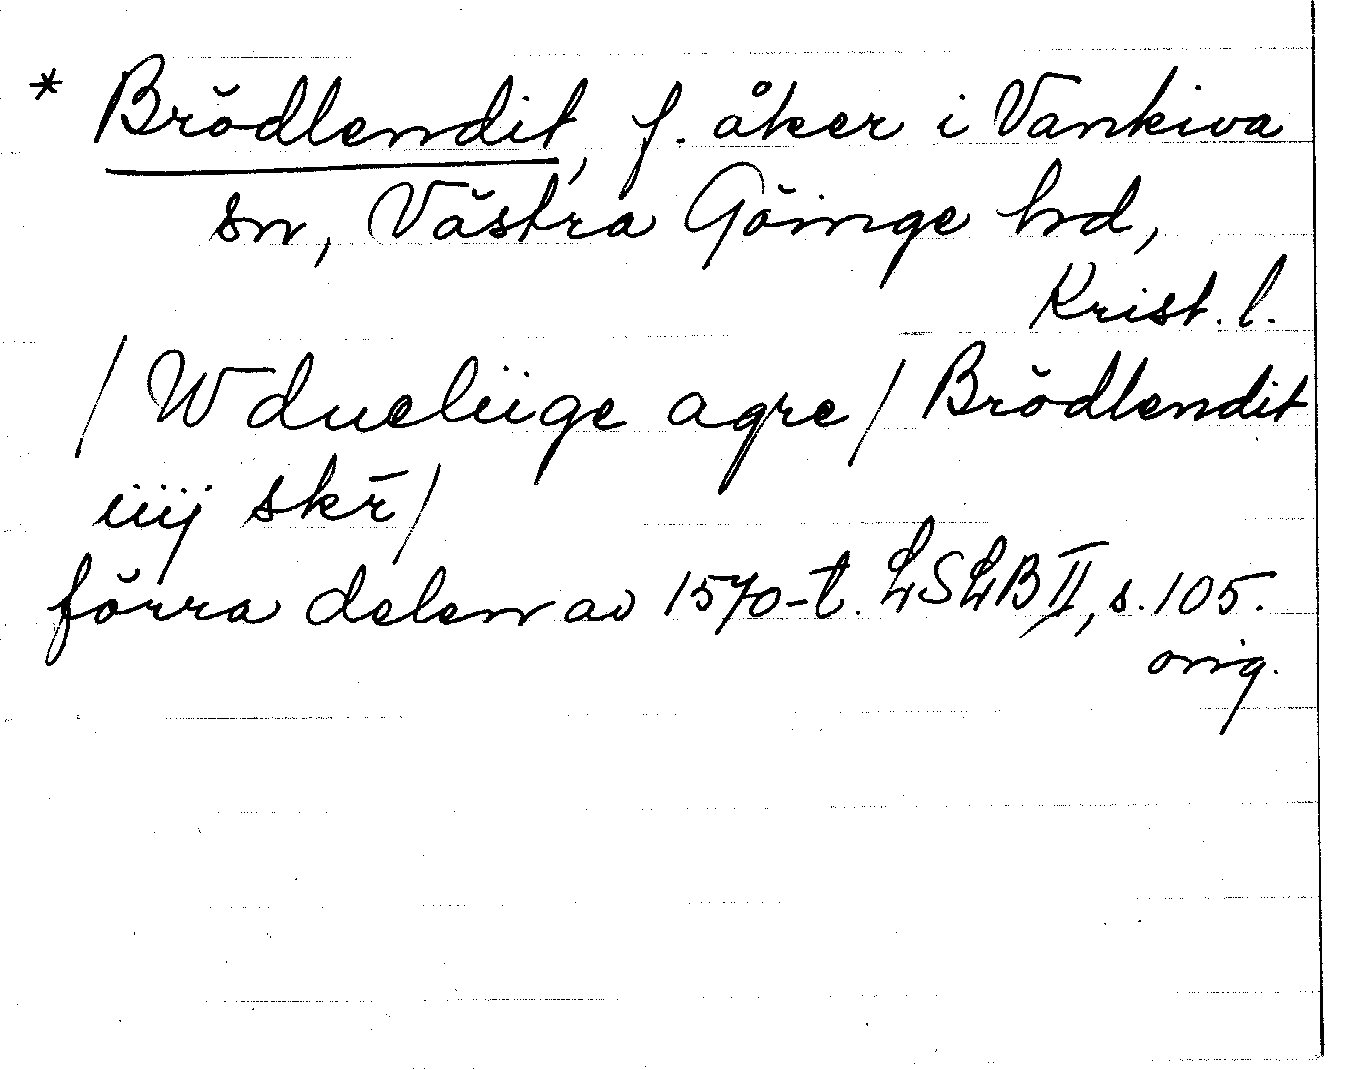 * Brödlendit, f. åker i Vankiva
sn, Västra Göinge hd,
Krist. l.
/ Wdueliige agre / Brödlendit
iiij skr̄ /
förra delen av 1570-t. LSLB II, s. 105.
orig.